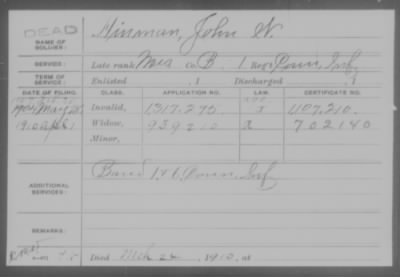 DEAD
NAME OF SOLDIER: Hinman, John W.
SERVICE: Late rank Mus Co. B, 1 Reg't Conn. Inf.
TERM OF SERVICE: Enlisted , 1 Discharged , 1
DATE OF FILING. CLASS. APPLICATION NO. LAW. CERTIFICATE NO.
May Invalid, 1317.270 1107.210
1910 Apl 1 Widow, 939210 702140
Minor,
ADDITIONAL SERVICES: Band 1 & 6 Conn. Inf.
REMARKS:
Died Mch 24, 1910, at